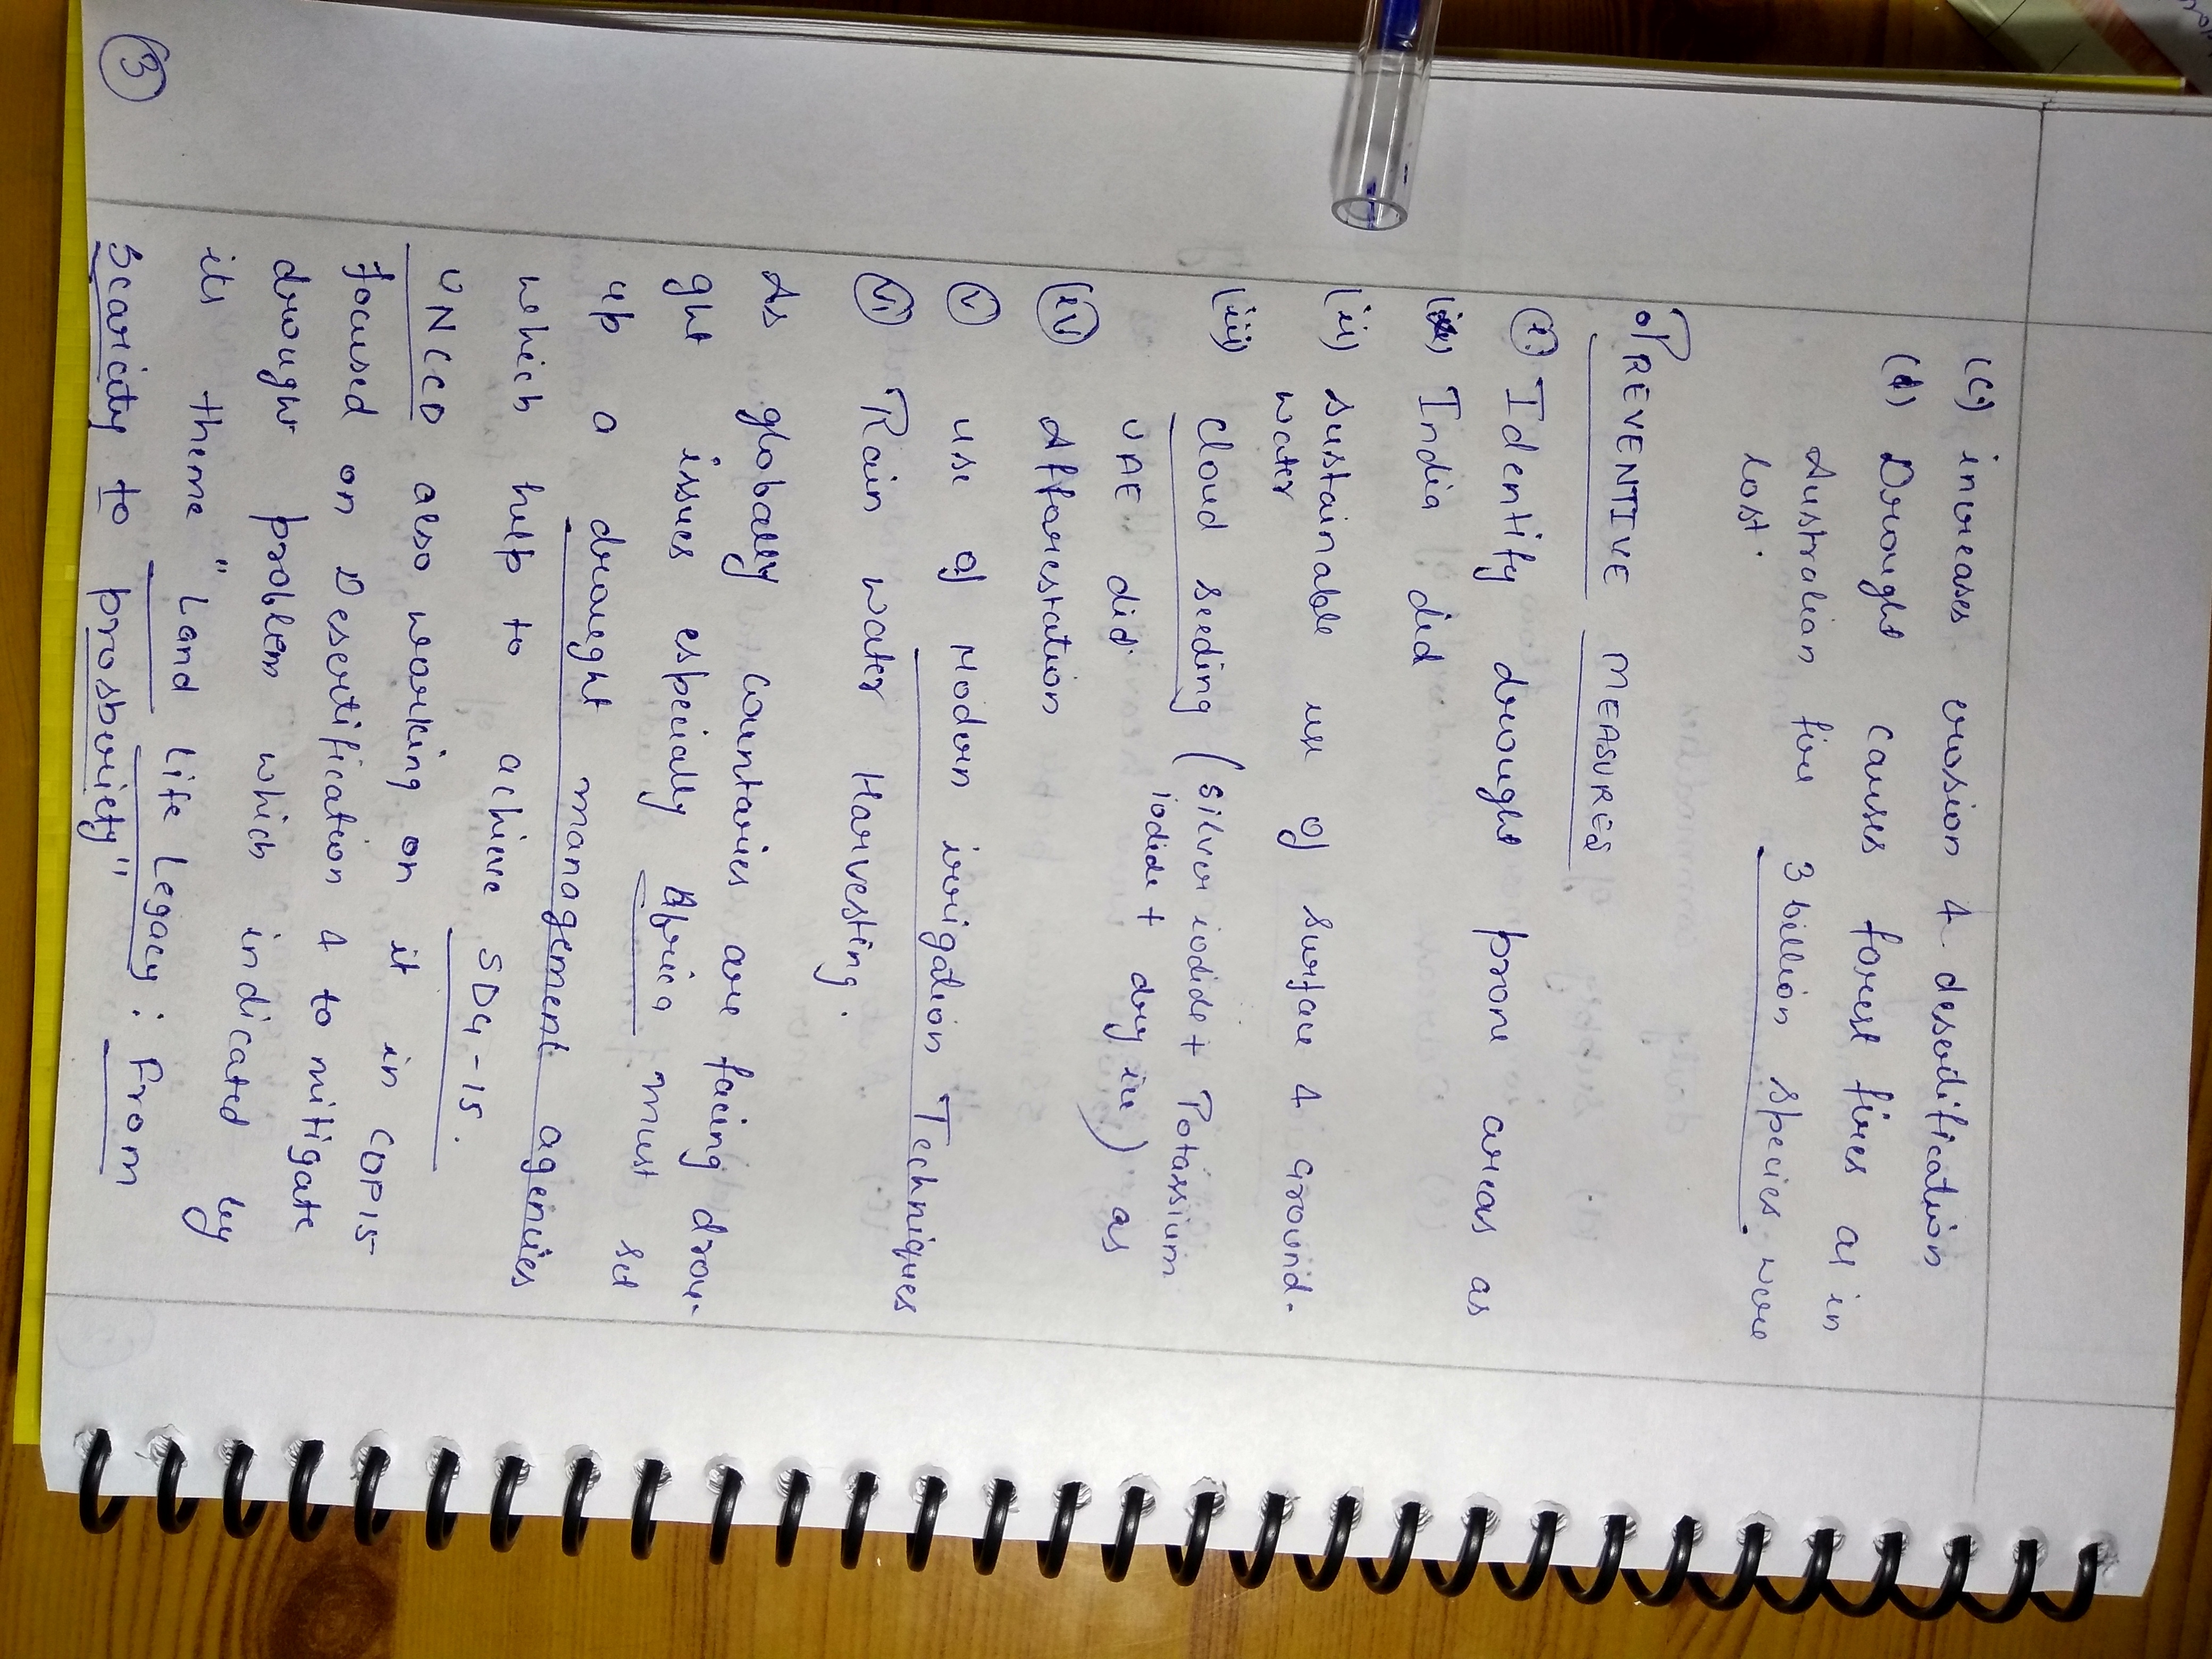 (c) increases erosion & desertification
(d) Drought causes forest fires as in
Australian fire 3 billion species were
lost.
PREVENTIVE MEASURES
(i) Identify drought prone areas as
India did
(ii) sustainable use of surface & ground-
water
(iii) cloud seeding (silver iodide + Potassium
iodide + dry ice) as
UAE did
(iv) Afforestation
(v) use of Modern irrigation Techniques
(vi) Rain water Harvesting.
As globally countries are facing drou-
ght issues especially Africa must set
up a drought management agencies
which help to achieve SDG-15.
UNCCD also working on it in COP15
focused on Desertification & to mitigate
drought problem which indicated by
its theme "Land Life Legacy: From
scaricity to prosbriety"
3